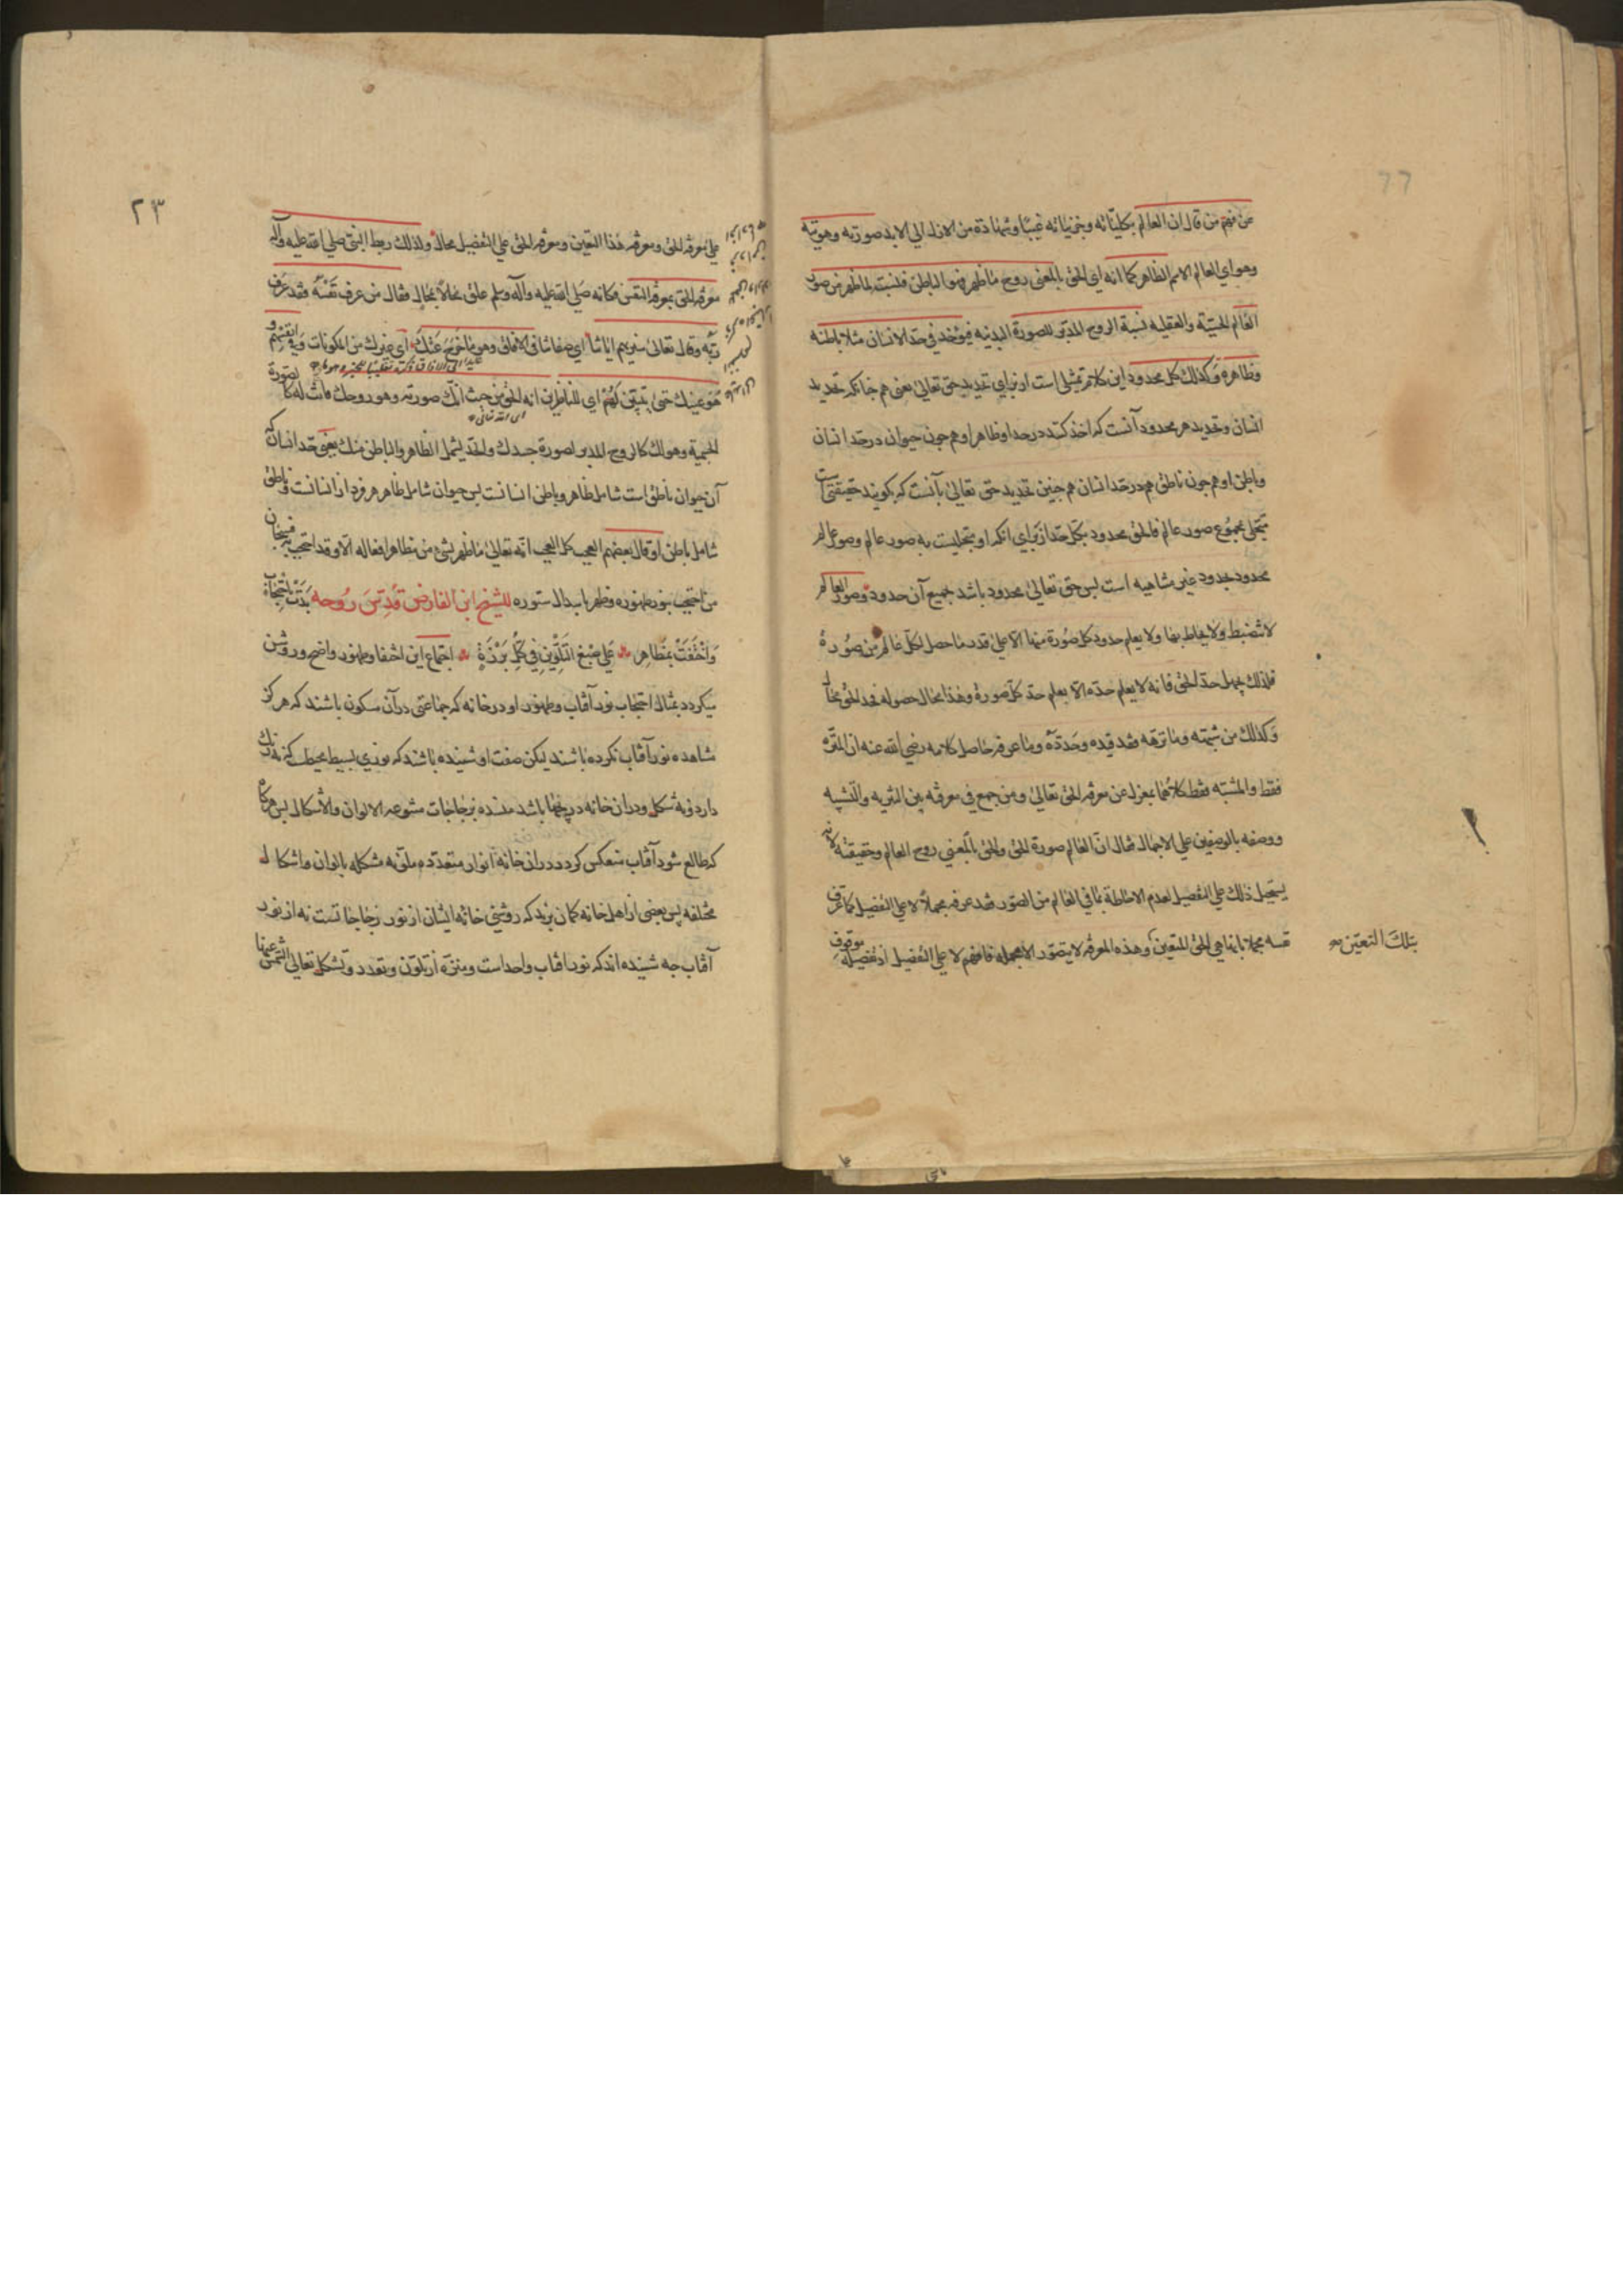 ٢٢
عن فهم من قال ان العالم بكلياته وجزئياته غيبا وشهادة من الازل الي الابد صورته وهويته
وهو اي العالم الاسم الظاهر كما انه اي الحق بالمعني روح ما ظهر فهو الباطن فنسبته لما ظهر من صور
العالم الحسيّة والعقلية نسبة الروح المدبر للصورة البدنيه فيؤخذ في حد الانسان مثلا باطنه
وظاهره وكذلك كل محدود اين كلام تمثيلي است از براي تحديد حق تعالى يعني هم چنانكه تحديد
انسان وتحديد هر محدود آنست كه اخذ كنند در حد او ظاهر او هم چون حيوان در حد انسان
وباطن او هم چون ناطق هم در حد انسان هم چنين تحديد حق تعالى بآنست كه بكويند حقيقتى است
متجلى بمجموع صور عالم فالحق محدود بكلّ حدّ از براي انكه او متجليست به صور عالم وصور عالم
محدود بحدود غير متناهيه است پس حق تعالى محدود باشد بجميع آن حدود وصور العالم
لا تنضبط ولا يحاط بها ولا يعلم حدود كل صورة منها الا على قدر ما حصل لكلّ عالم من صُورة
فلذلك يجهل حدّ الحق فانه لا يعلم حدّه الا بعلم حدّ كلّ صورة وهذا محال حصوله فحد الحق محال
وكذلك من شبّهه وما نزهه فقد قيده وحدّده وما عرفه حاصل كلامه رضي الله عنه ان المنزّه
فقط والمشبّه فقط كلاهما بمعزل عن معرفة الحق تعالى ومن جمع في معرفته بين التنزيه والتشبيه
ووصفه بالوصفين على الاجمال فقال انّ العالم صورة الحق والحق بالمعني روح العالم وحقيقته لانه
يستحيل ذلك علي التفصيل لعدم الاحاطة بما في العالم من الصور فقد عرفه مجملاً لا علي التفصيل كما عرف
نفسه مجملا بانها هي الحق المتعين وهذه المعرفة لا يتصور الا مجملة فافهم لا على التفصيل اذ تفصيله موقوف
بتلك التعيّن
٢٣
علي معرفة الحق ومعرفة هذا التعين ومعرفة الحق علي التفصيل محال ولذلك ربط النبيّ صلي الله عليه وآله
معرفة الحق بمعرفة النفس فكانه صلي الله عليه وآله وسلم علق محالا بمحال فقال من عرف نفسه فقد عرف
ربّه وقال تعالى سنريهم اياتنا اي صفاتنا في الافاق وهو ما خرج عنك اي غيرك من المكونات وفي انفسهم و
هو عينك حتى يتبيّن لهم اي للناظرين انه الحق من حيث انك صورته وهو روحك فانت له كالصورة
الجسمية وهو لك كالروح المدبر لصورة جسدك والحد يشمل الظاهر والباطن منك يعني حد انسان كه
آن حيوان ناطق است شامل ظاهر وباطن انسانست پس حيوان شامل ظاهر هر فرد از انسانست وناطق
شامل باطن او قال بعضهم العجب كل العجب انّه تعالى ما ظهر بشيء من مظاهر افعاله الا وقد احتجب به فسبحان
من احتجب بنور ظهوره وظهر باسدال ستوره للشيخ ابن الفارض قُدِّسَ رُوحه بَدَتْ باحتجاب
وَاخْتَفَتْ بمَظَاهِرٍ عَلَي صِبَغِ التَلْوِينِ فِي كُلِّ بَرْزَةٍ اجتماع اين اختفا وظهور واضح وروشن
ميكردد بمثال احتجاب نور آفتاب وظهور او در خانه كه جماعتى در آن مسكون باشند كه هركز
مشاهده نور آفتاب نكرده باشند ليكن صفت او شنيده باشند كه نوري بسيط محيط كه نه رنك
دارد ونه شكل ودر ان خانه دريچها باشد منسده بزجاجات متنوعه الالوان والاشكال پس هركاه
كه طالع شود آفتاب منعكس كردد در ان خانه انوار متعدّده ملوّنه مشكله بالوان واشكال
مختلفه پس بعضى از اهل خانه كمان برند كه روشنى خانه ايشان از نور زجاجاتست نه از نور
آفتاب چه شنيده اند كه نور افتاب واحد است ومنزه از تلون وتعدد وتشكل تعالى الشمس عنها